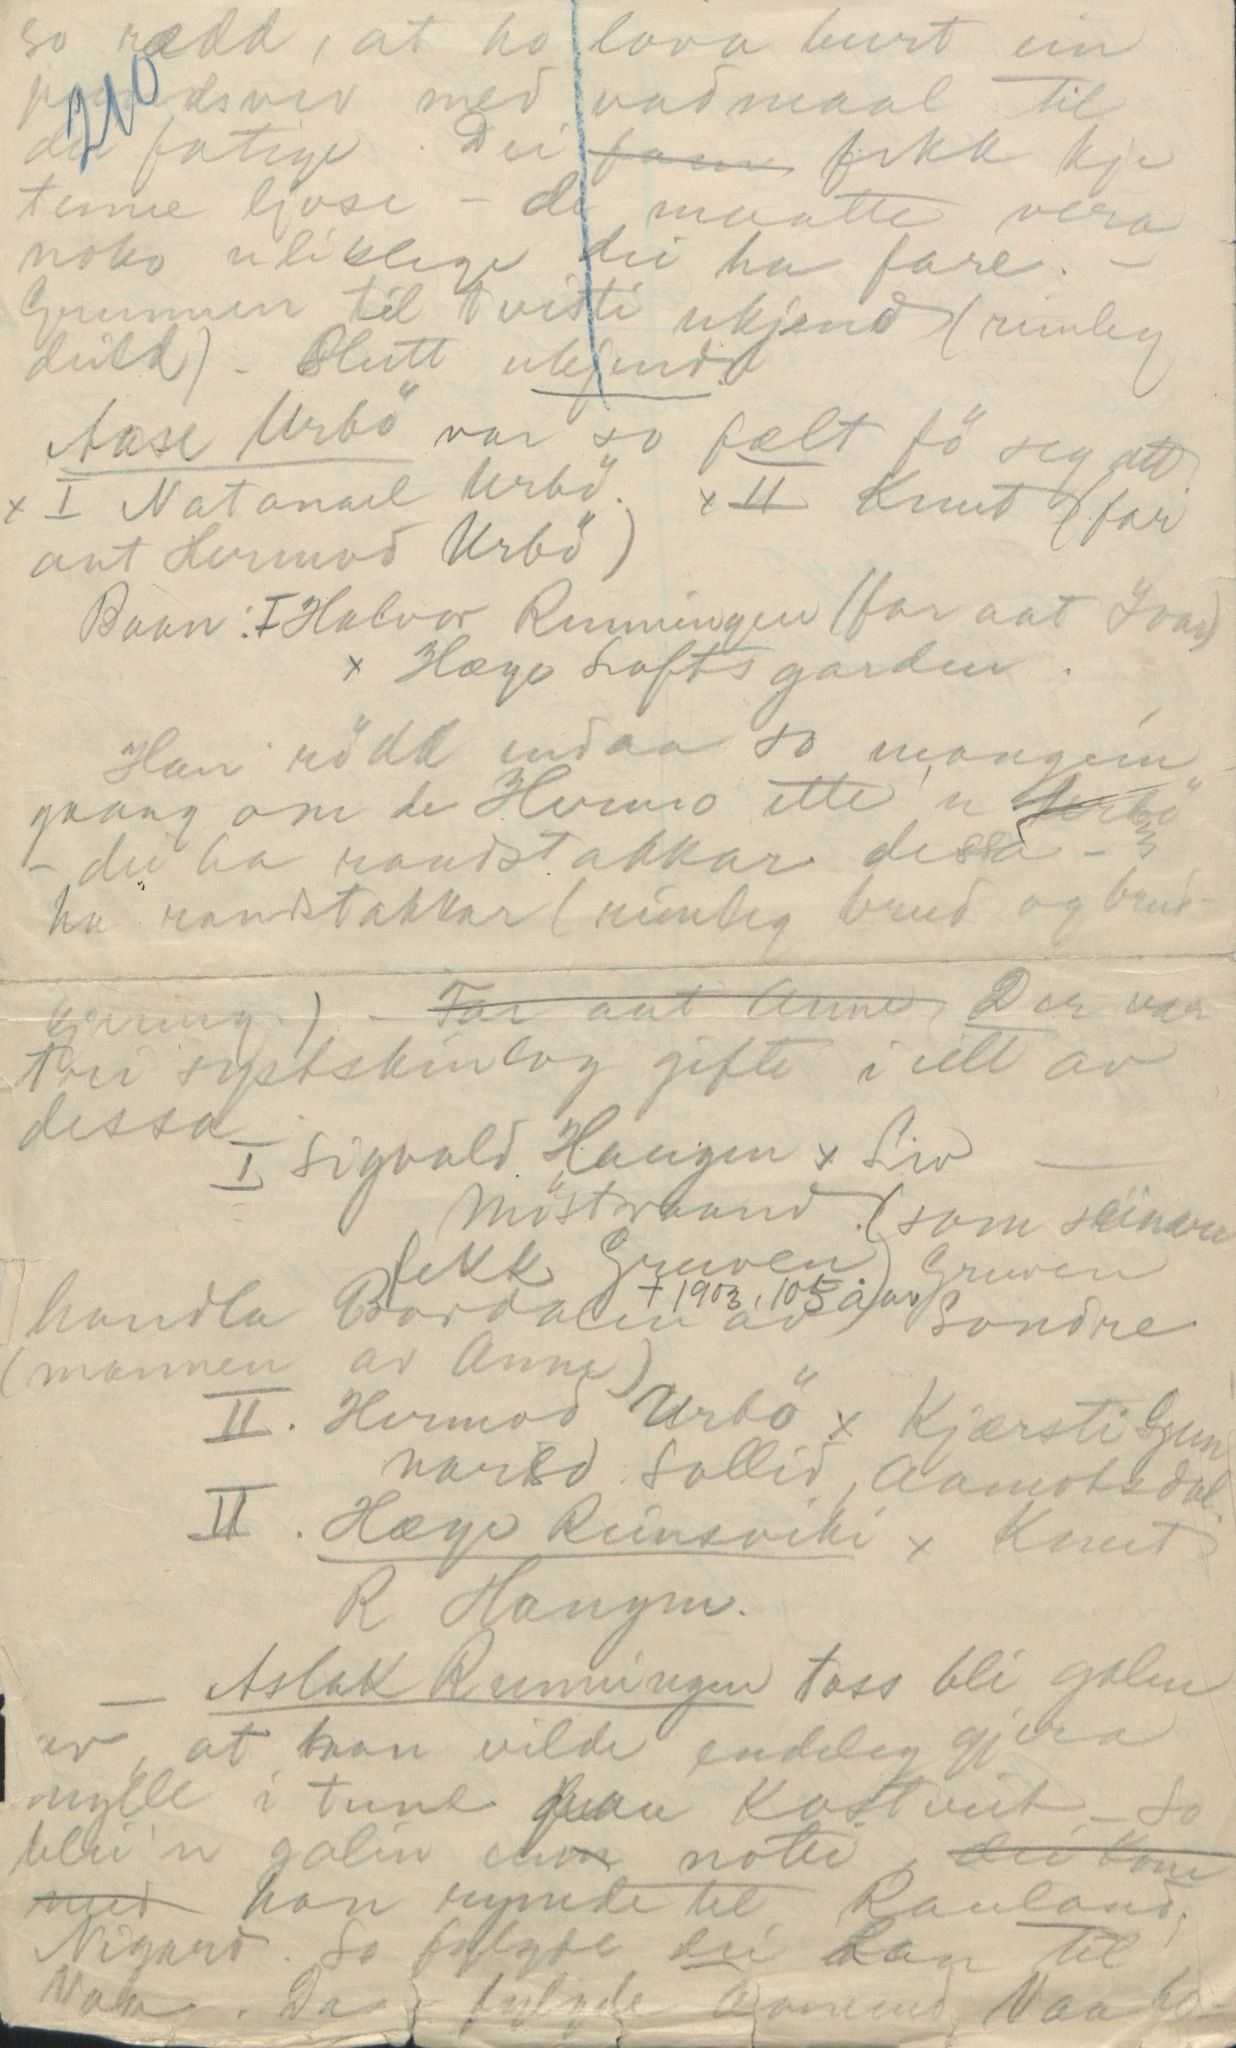 so rædd, at ho lova burt ein
210
pundsvev med vadmaal til
dei fatige. Dei fekk kje
tenne ljose - de maatte vera
noko uliklege dei ha fare. -
Grunnen til tvisti ukjend (rimleg
deild) - Slutt ukjend.
Aase Urbö var so fælt fö seg att
x I Natanael Urbö. x II Knut (far
aat Hermod Urbö)
Baan: I Halvor Runningen (far aat Ivar)
x Hæge Loftsgarden.
Han rödd endaa so mangein
gaang om de Hermo ette'n Urbö
- dei ha randstakkar dessa -
ha randstakkar (rimleg brud og brud-
gjering.) - Far aat Anne Der var
tri systskinlog gifte i ett av
dessa
I Sigvald Haugen x Liv
Möstraand (som seinare
fekk Gruven) Gruven
+ 1903, 105 aar
handla Bordalen av Sondre
(mannen av Anne)
II. Hermod Urbö x Kjærsti Gun
narsd Sollid, Aamotsdal
II. Hæge Reinsviki x Knut
R Haugen.
- Aslak Runningen toss bli galen
av, at han vilde endeleg gjera
mylle i tune paa Kostveit - So
blei'n galin noti, dei kom
med han rymde til Rauland,
Nigard. So fylgde dei han til
Vaa. Da fylgde Aamund Vaa ho-